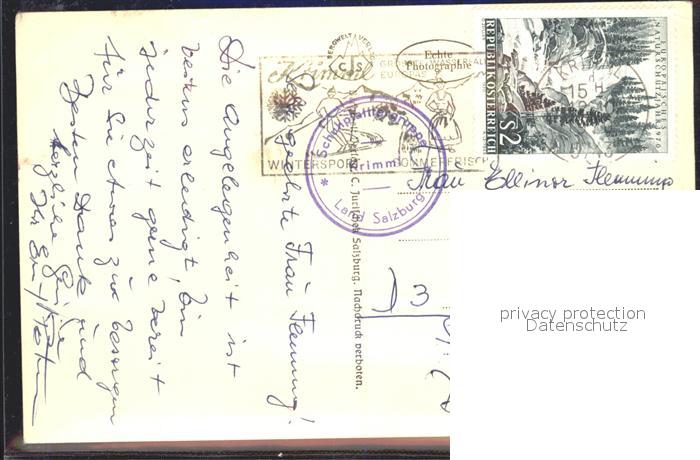 Sehr geehrte Frau Flemming!
Die Angelegenheit ist
bestens erledigt, bin
jederzeit gerne bereit
für Sie etwas zu besorgen
Besten Dank und
herzliche Grüße
Ihr
BERGWELT VERLAG
C J S
Echte
Photographie
C. Jurischek Salzburg. Nachdruck verboten.
Krimml
GRÖSSTE WASSERFÄLLE
EUROPAS
WINTERSPORT
SOMMERFRISCHE
Schuhplattlergruppe
Krimml
* Land Salzburg *
EUROPÄISCHES
NATURSCHUTZJAHR 1970
REPUBLIK ÖSTERREICH
S2
KRIMML
15
Frau Ellinor Flemming
D 3
privacy protection
Datenschutz